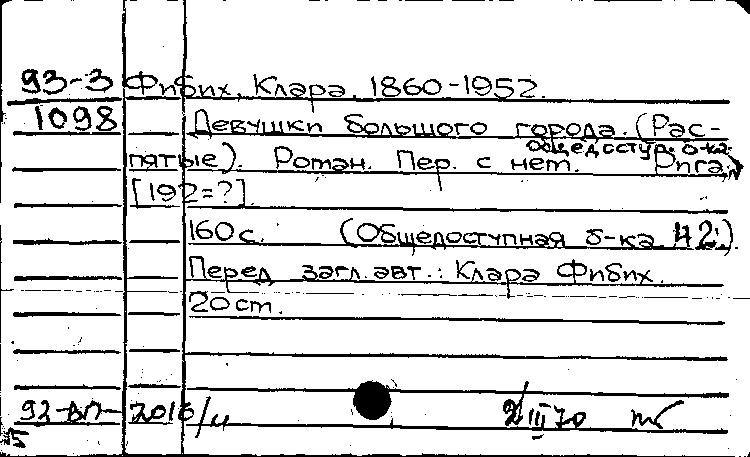 93-3 Фибих, Клара, 1860-1952.
1098 Девушки большого города. (Рас-
пятые). Роман. Пер. с нем. Рига,
Общедоступ. б-ка
[192=?].
160 с. (Общедоступная б-ка 42.).
Перед загл. авт.: Клара Фибих.
20 ст.
92-ВП- 2016/4 2/III 70